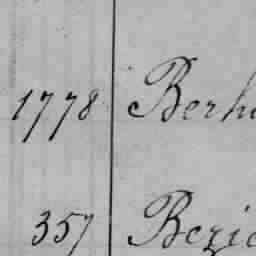 1778 Berh
357 Bezie